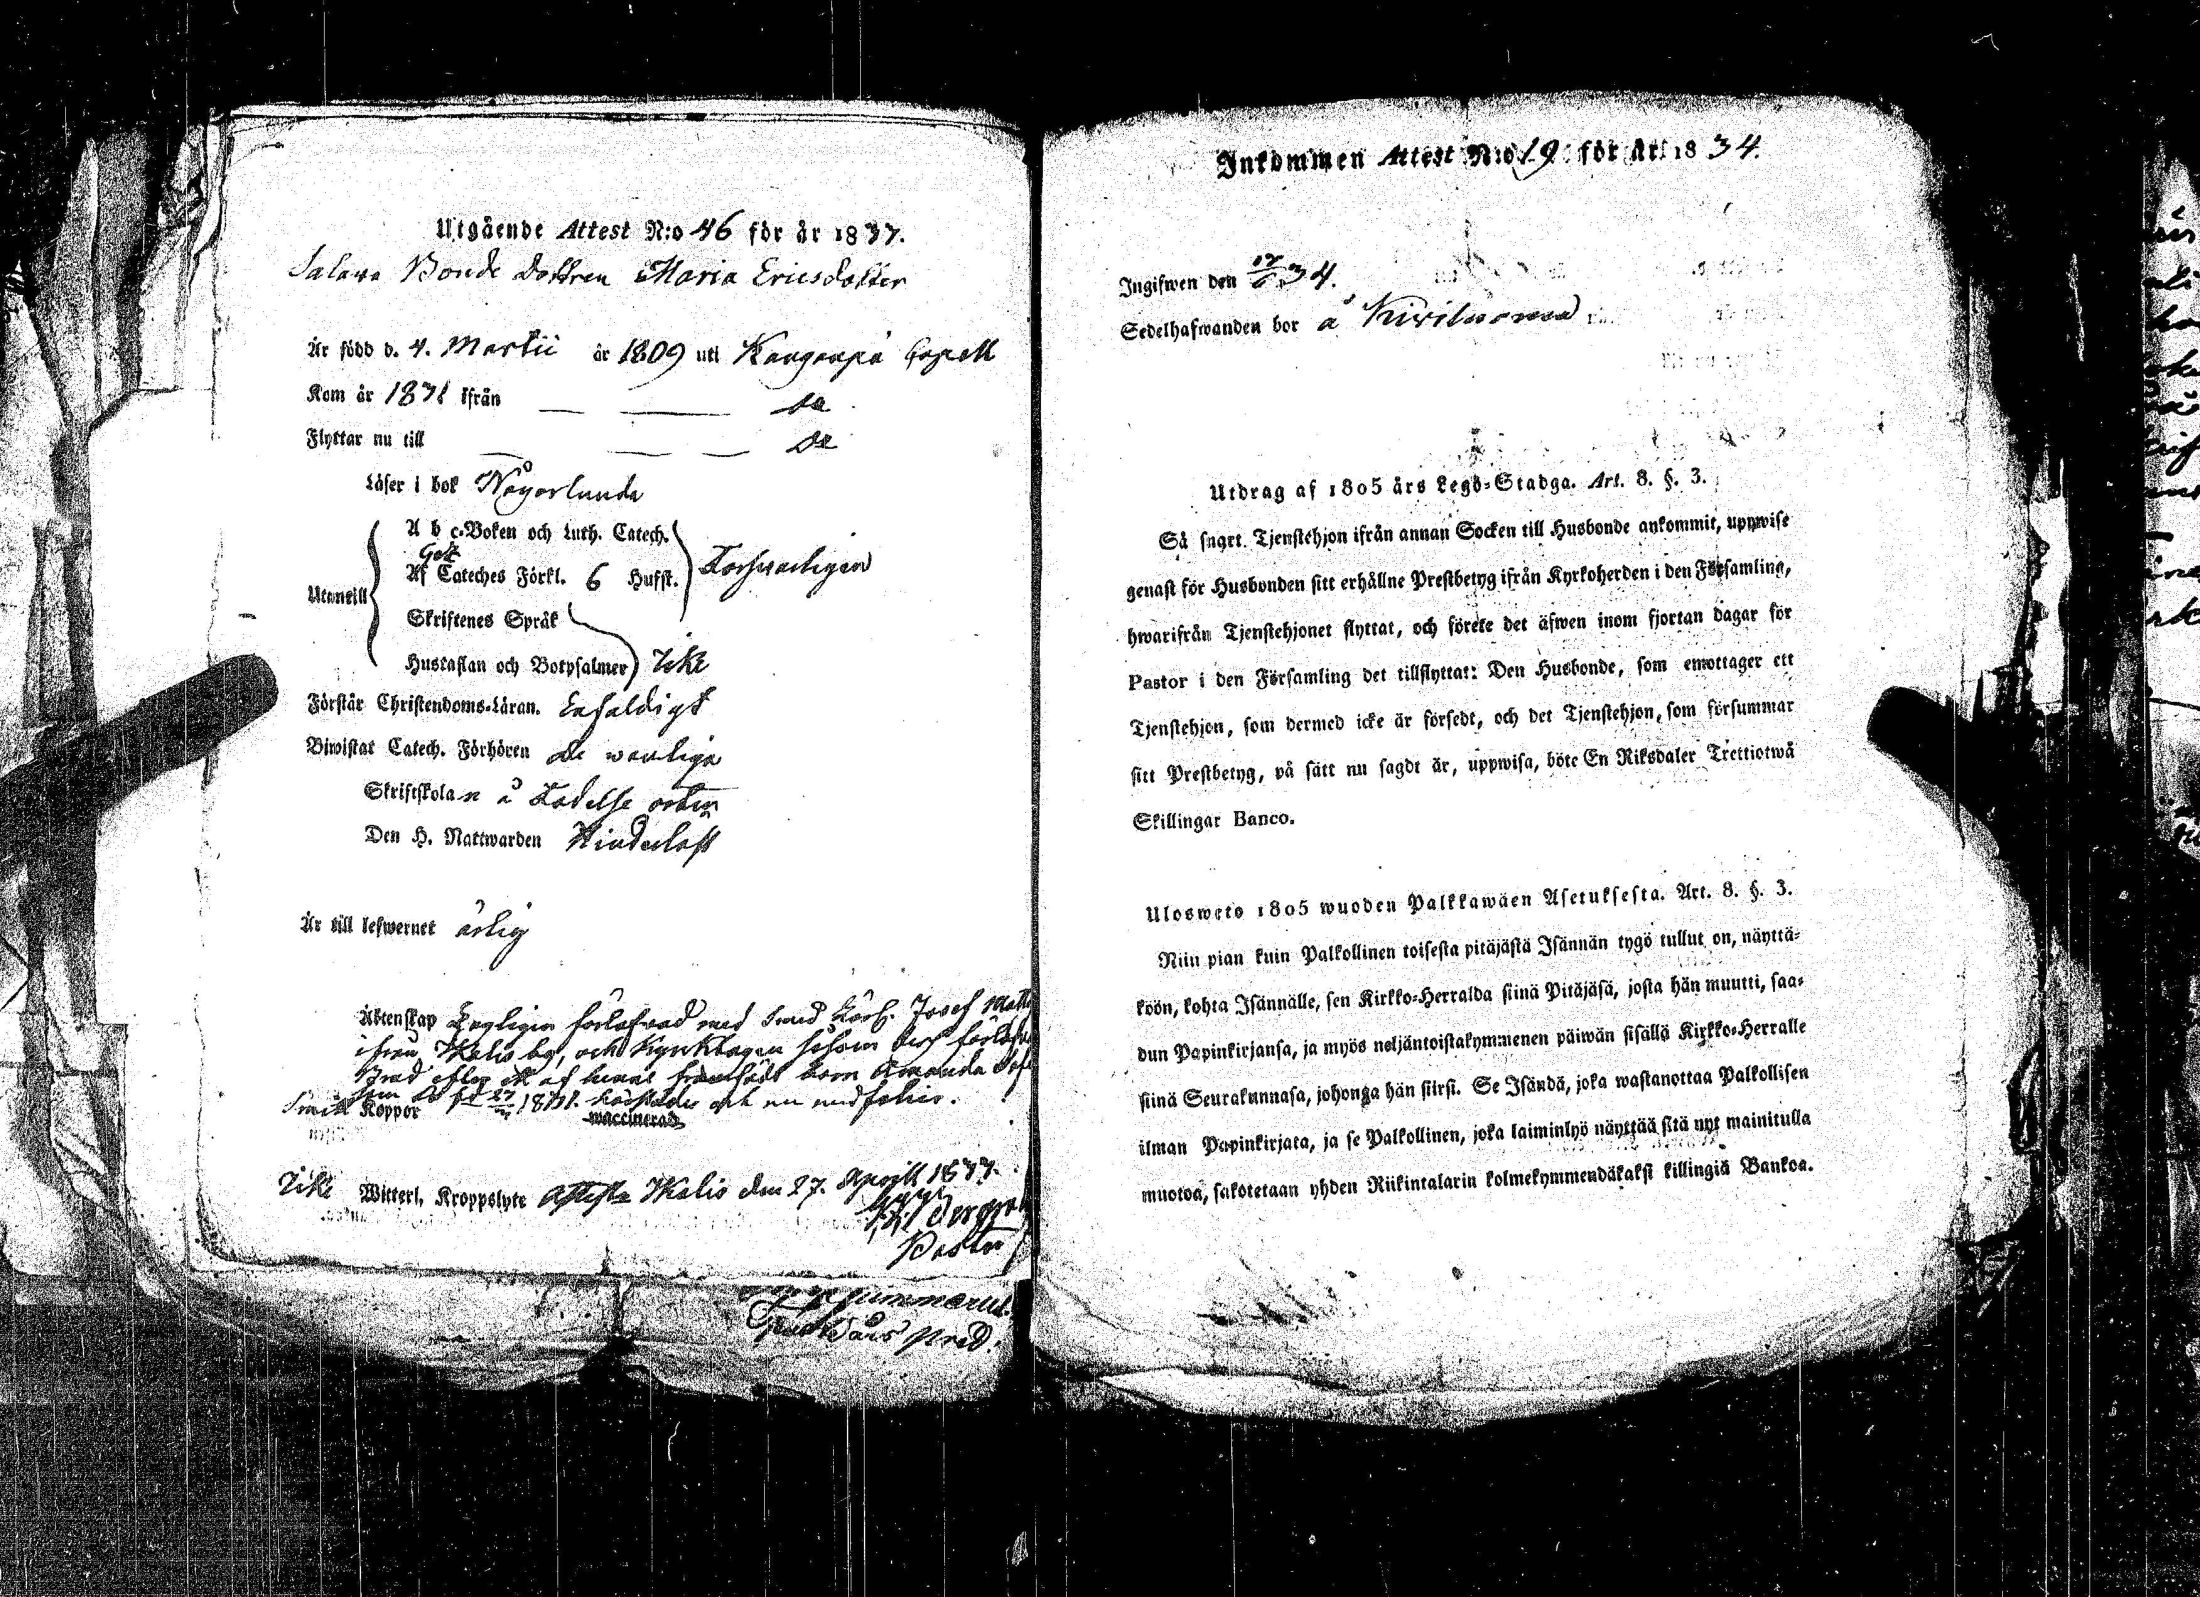 Utgående Attest N:o 46 för år 1833.
Salava Bonde Dottren Maria Ericsdotter
Är född d. 4. Martii år 1809 uti Kanganpä Capell
Kom år 1831 ifrån — — do
Flyttar nu till — — — do
Läser i bok Någorlunda
A b c-Boken och Luth. Catech.
Af Cateches Förkl. 6 Hufst. Försvarligen
Utantill
Skriftenes Språk
Hustaflan och Botpsalmer Icke
Förstår Christendoms-Läran. Enfaldigt
Biwistat Catech. Förhören de wanliga
Skriftskolan å Födelse orten
Den H. Nattwarden Hinderlöst
Är till lefwernet ärlig
Äktenskap Lagligen förlofvad med Josef
ifrån Ikalis och Kyrktagen såsom dess
efter ett af henne framfödt barn Amanda
Koppor
waccinerad
Icke Witterl. Kroppslyte Attesta Ikalis den 27. April 1833.
Pastor
Inkommen Attest N:o 19 för År 1834.
Ingifwen den 34.
Sedelhafwanden bor å Kiviluoma
Utdrag af 1805 års Lego-Stadga. Art. 8. §. 3.
Så snart Tjenstehjon ifrån annan Socken till Husbonde ankommit, uppwise
genast för Husbonden sitt erhållne Prestbetyg ifrån Kyrkoherden i den Församling,
hwarifrån Tjenstehjonet flyttat, och förete det äfwen inom fjortan dagar för
Pastor i den Församling det tillflyttat: Den Husbonde, som emottager ett
Tjenstehjon, som dermed icke är försedt, och det Tjenstehjon, som försummar
sitt Prestbetyg, på sätt nu sagdt är, uppwisa, böte En Riksdaler Trettiotwå
Skillingar Banco.
Ulosweto 1805 wuoden Palkkawäen Asetuksesta. Art. 8. §. 3.
Niin pian kuin Palkollinen toisesta pitäjästä Isännän tygö tullut on, näyttä-
köön, kohta Isännälle, sen Kirkko-Herralda siinä Pitäjäsä, josta hän muutti, saa-
dun Papinkirjansa, ja myös neljäntoistakymmenen päiwän sisällä Kirkko-Herralle
siinä Seurakunnasa, johonga hän siirsi. Se Isändä, joka wastanottaa Palkollisen
ilman Papinkirjata, ja se Palkollinen, joka laiminlyö näyttää sitä nyt mainitulla
muotoa, sakotetaan yhden Riikintalarin kolmekymmendäkaksi killingiä Bankoa.